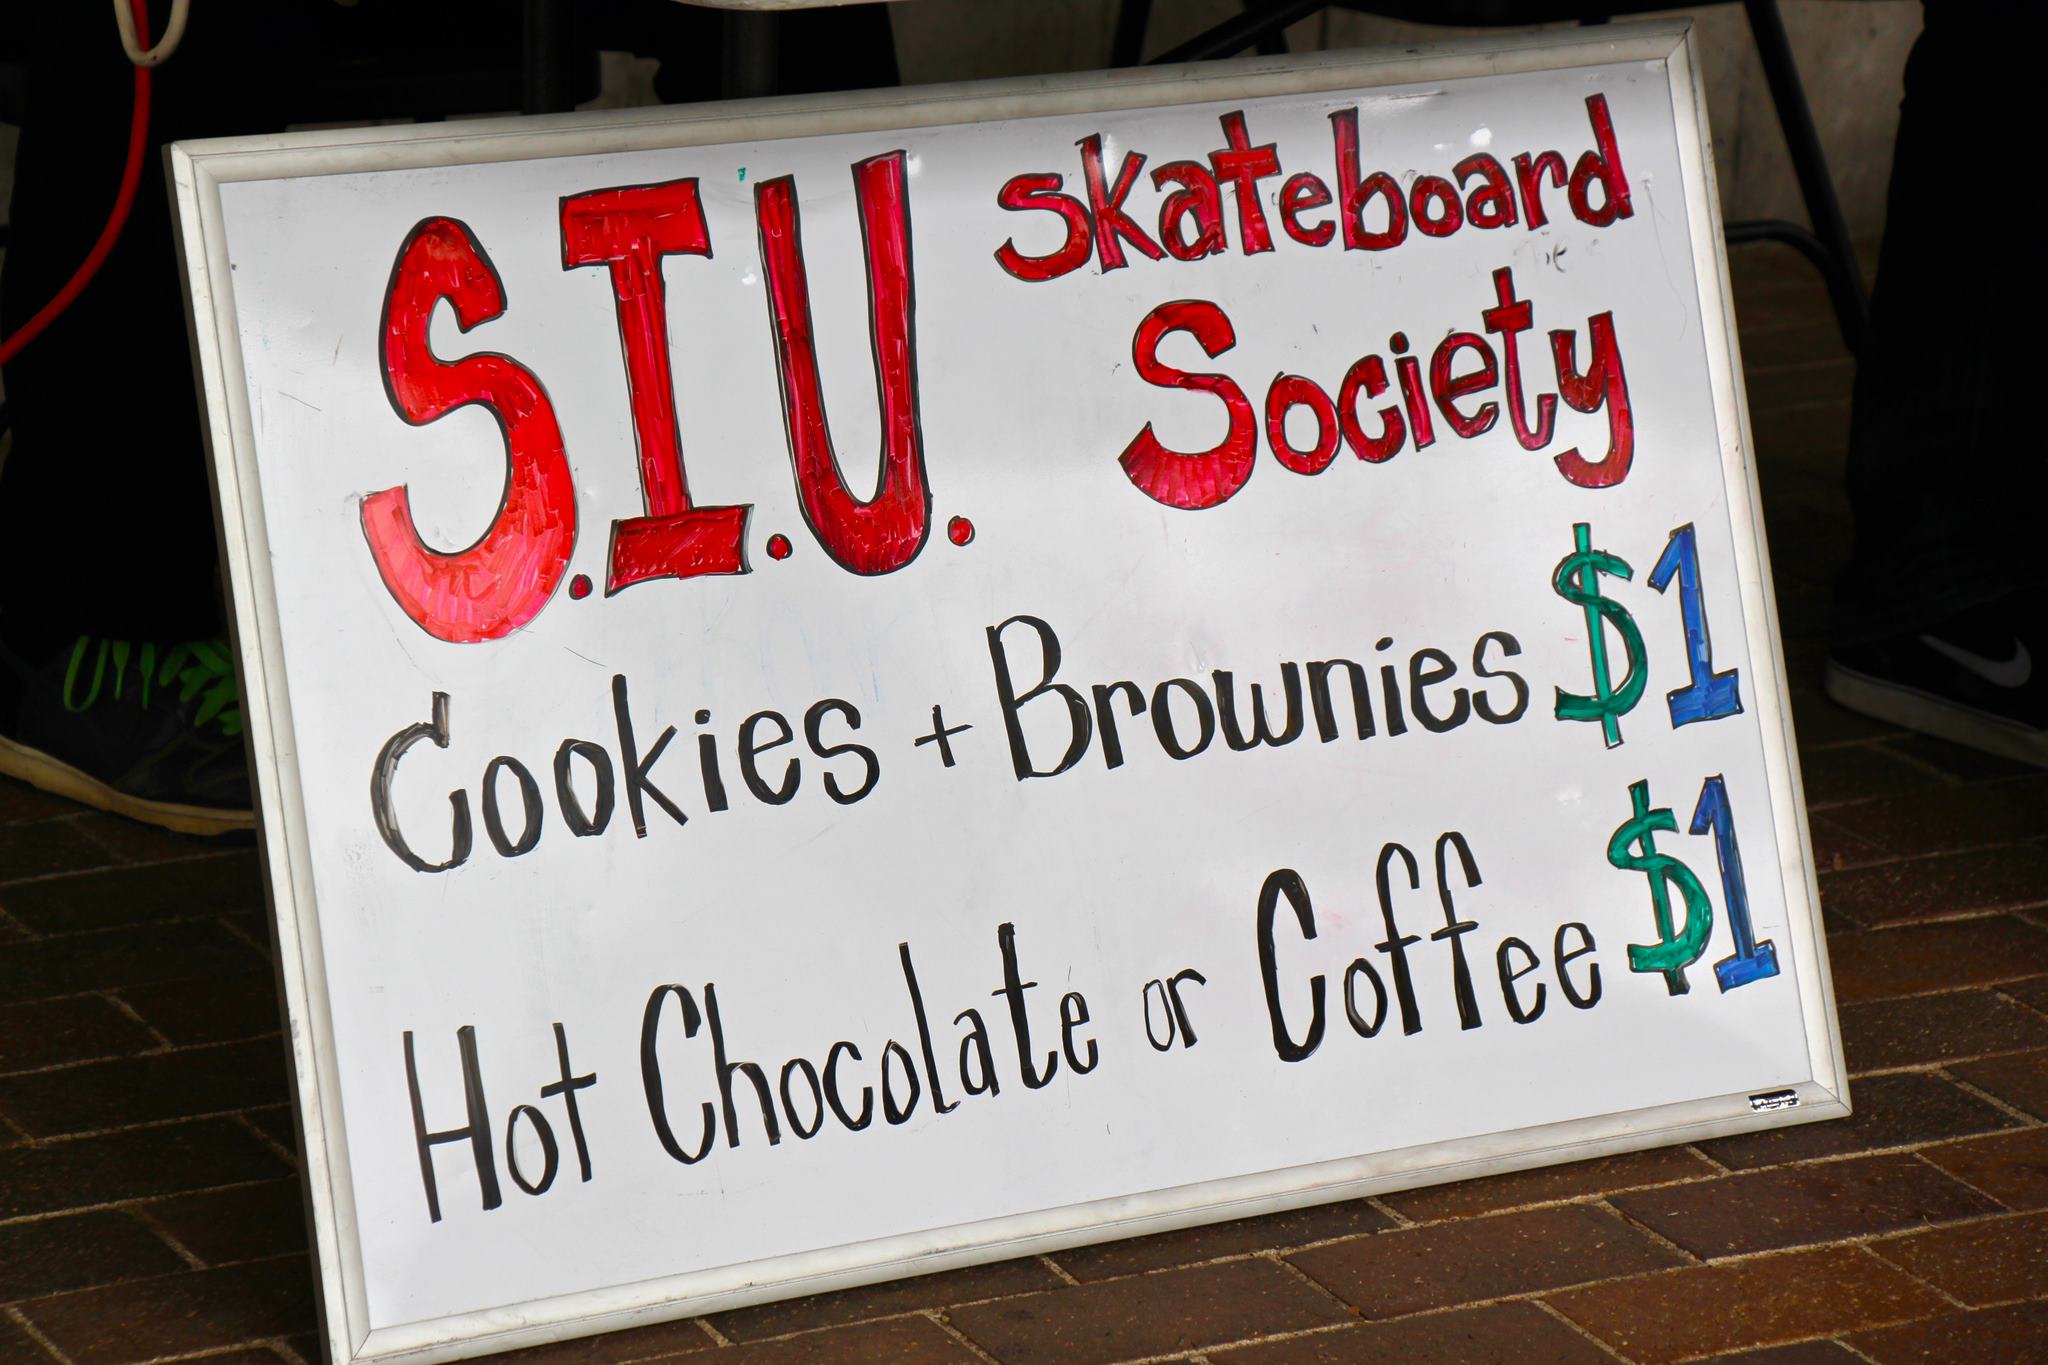 S.I.U. Skateboard
Society
Cookies + Brownies $1
Hot Chocolate or Coffee $1